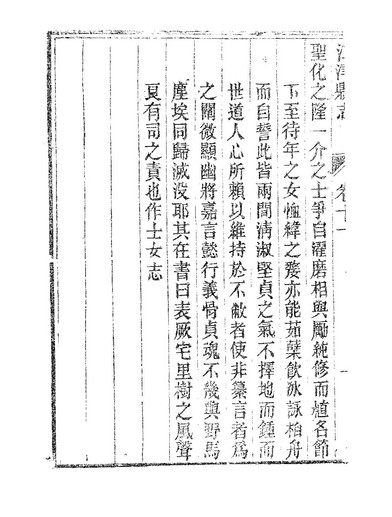 江津縣志 卷十一 一
聖化之隆一介之士爭自濯磨相與勵純修而植名節
下至待年之女恤緯之嫠亦能茹蘖飲冰詠柏舟
而自誓此皆兩間清淑堅貞之氣不擇地而鍾而
世道人心所賴以維持於不敝者使非纂言者爲
之闡微顯幽將嘉言懿行義骨貞魂不幾與野馬
塵埃同歸滅沒耶其在書曰表厥宅里樹之風聲
寔有司之責也作士女志